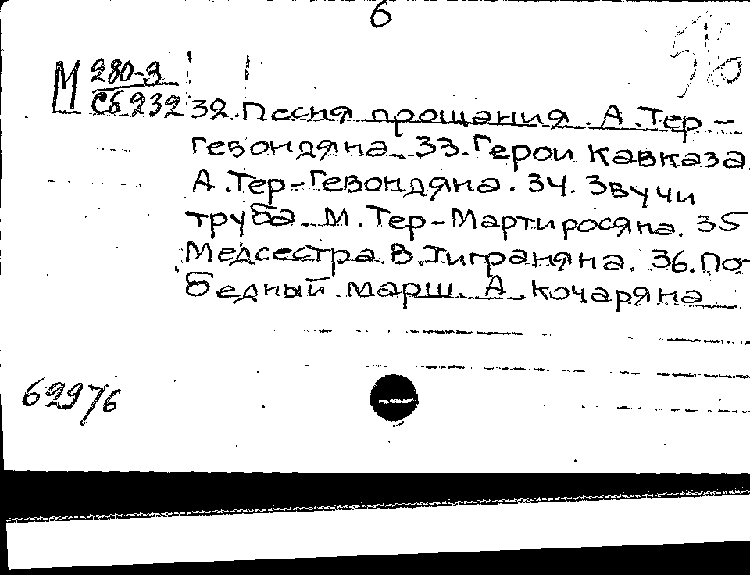 6
56
М 280-3
Сб 232
32. Песня прощания. А. Тер-
Гевондяна. 33. Герои Кавказа
А. Тер-Гевондяна. 34. Звучи
труба. М. Тер-Мартиросяна. 35
Медсестра В. Тиграняна. 36. По-
бедный марш. А. Кочаряна
62976